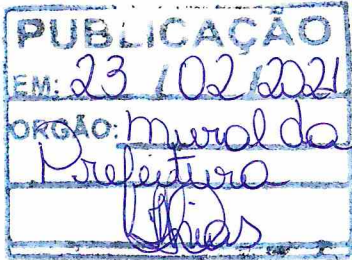 PUBLICAÇÃO
EM: 23 / 02 / 2021
ORGÃO: Mural da
Prefeitura